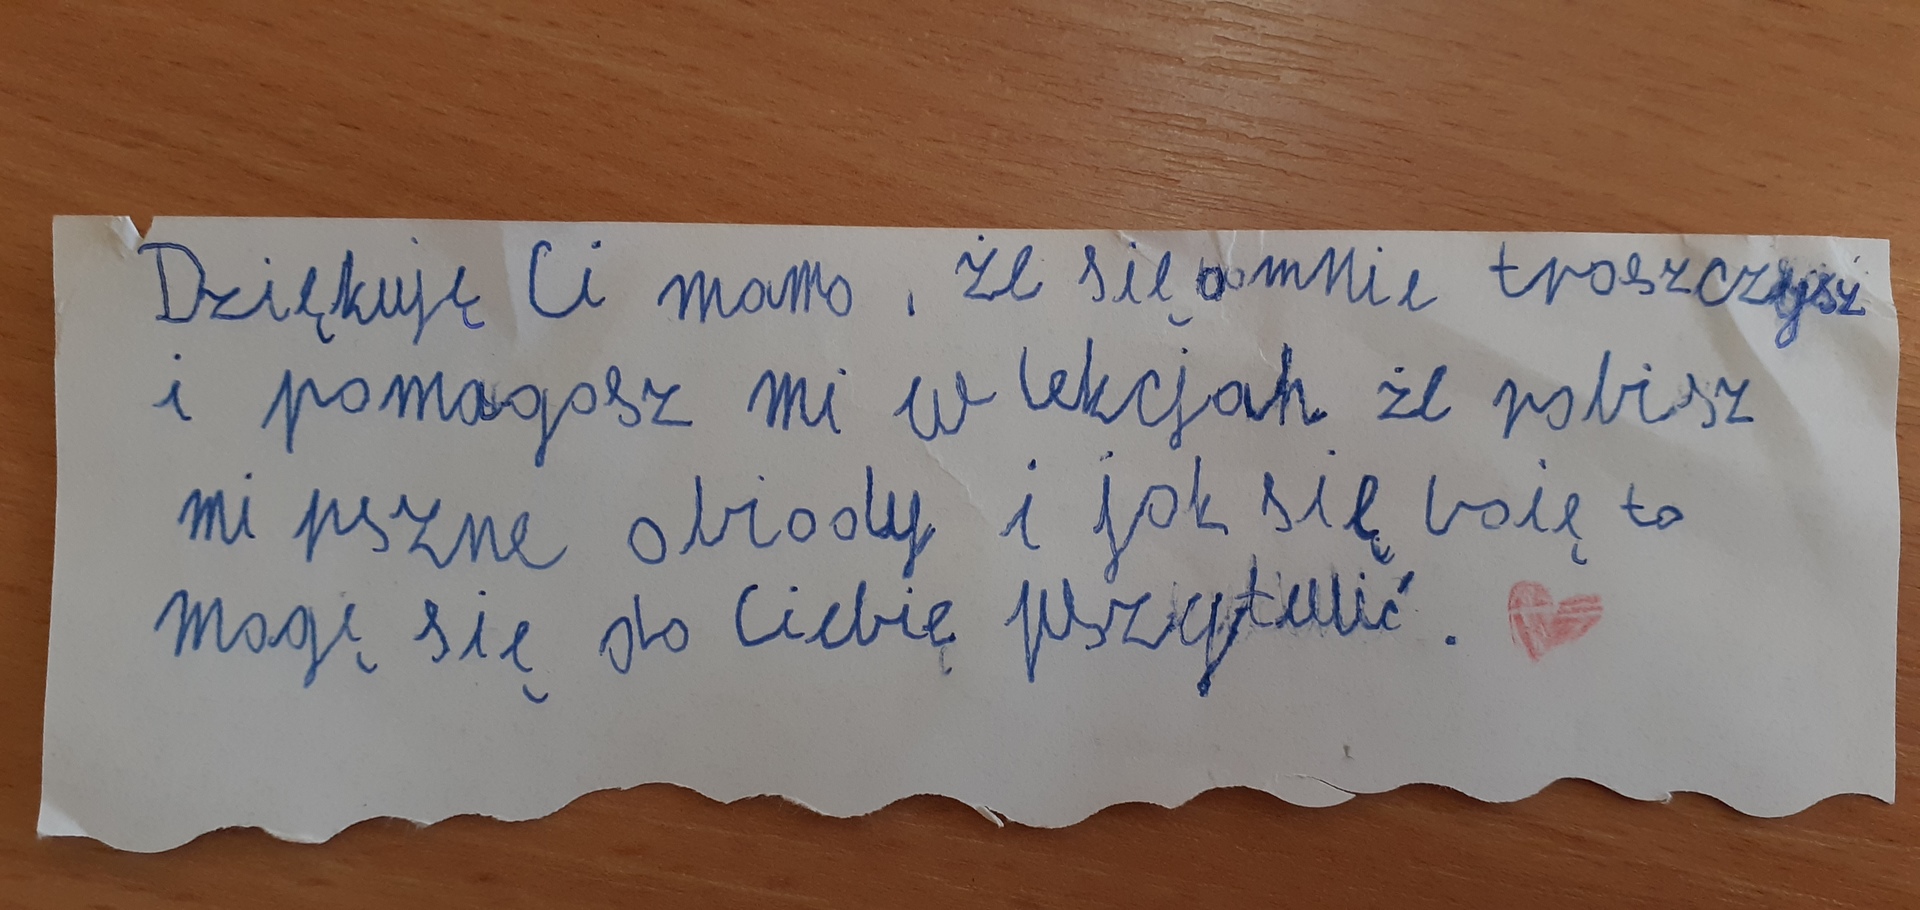 Dziękuję Ci mamo, że się o mnie troszczysz
i pomagasz mi w lekcjah że robisz
mi pszne obiady i jak się boię to
mogę się do Ciebię pszytulić.